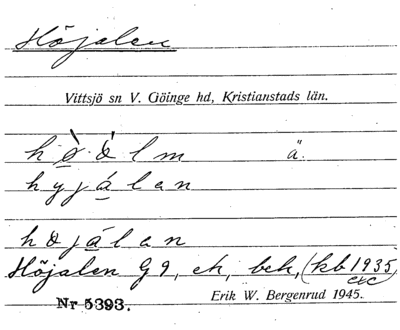 Höjalen
Vittsjö sn V. Göinge hd, Kristianstads län.
ä.
hyjálan
höjálan
Höjalen G 9, eh, beb, (kb 1935
etc
Erik W. Bergenrud 1945.
Nr 5393.